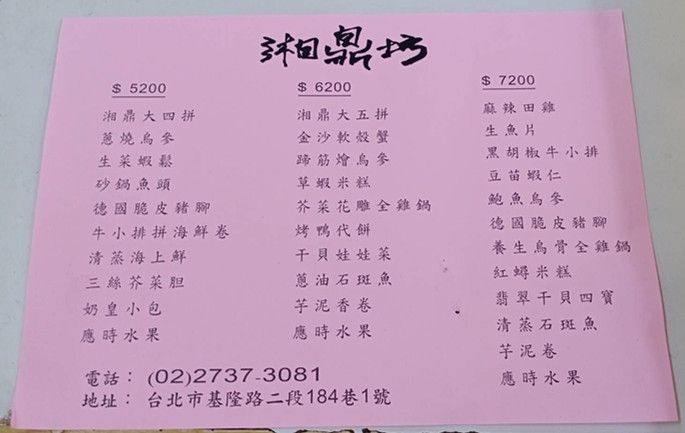 湘鼎坊
$ 5200
湘鼎大四拼
蔥燒烏參
生菜蝦鬆
砂鍋魚頭
德國脆皮豬腳
牛小排拼海鮮卷
清蒸海上鮮
三絲芥菜胆
奶皇小包
應時水果
$ 6200
湘鼎大五拼
金沙軟殼蟹
蹄筋燴烏參
草蝦米糕
芥菜花雕全雞鍋
烤鴨代餅
干貝娃娃菜
蔥油石斑魚
芋泥香卷
應時水果
$ 7200
麻辣田雞
生魚片
黑胡椒牛小排
豆苗蝦仁
鮑魚烏參
德國脆皮豬腳
養生烏骨全雞鍋
紅蟳米糕
翡翠干貝四寶
清蒸石斑魚
芋泥卷
應時水果
電話： (02)2737-3081
地址： 台北市基隆路二段184巷1號